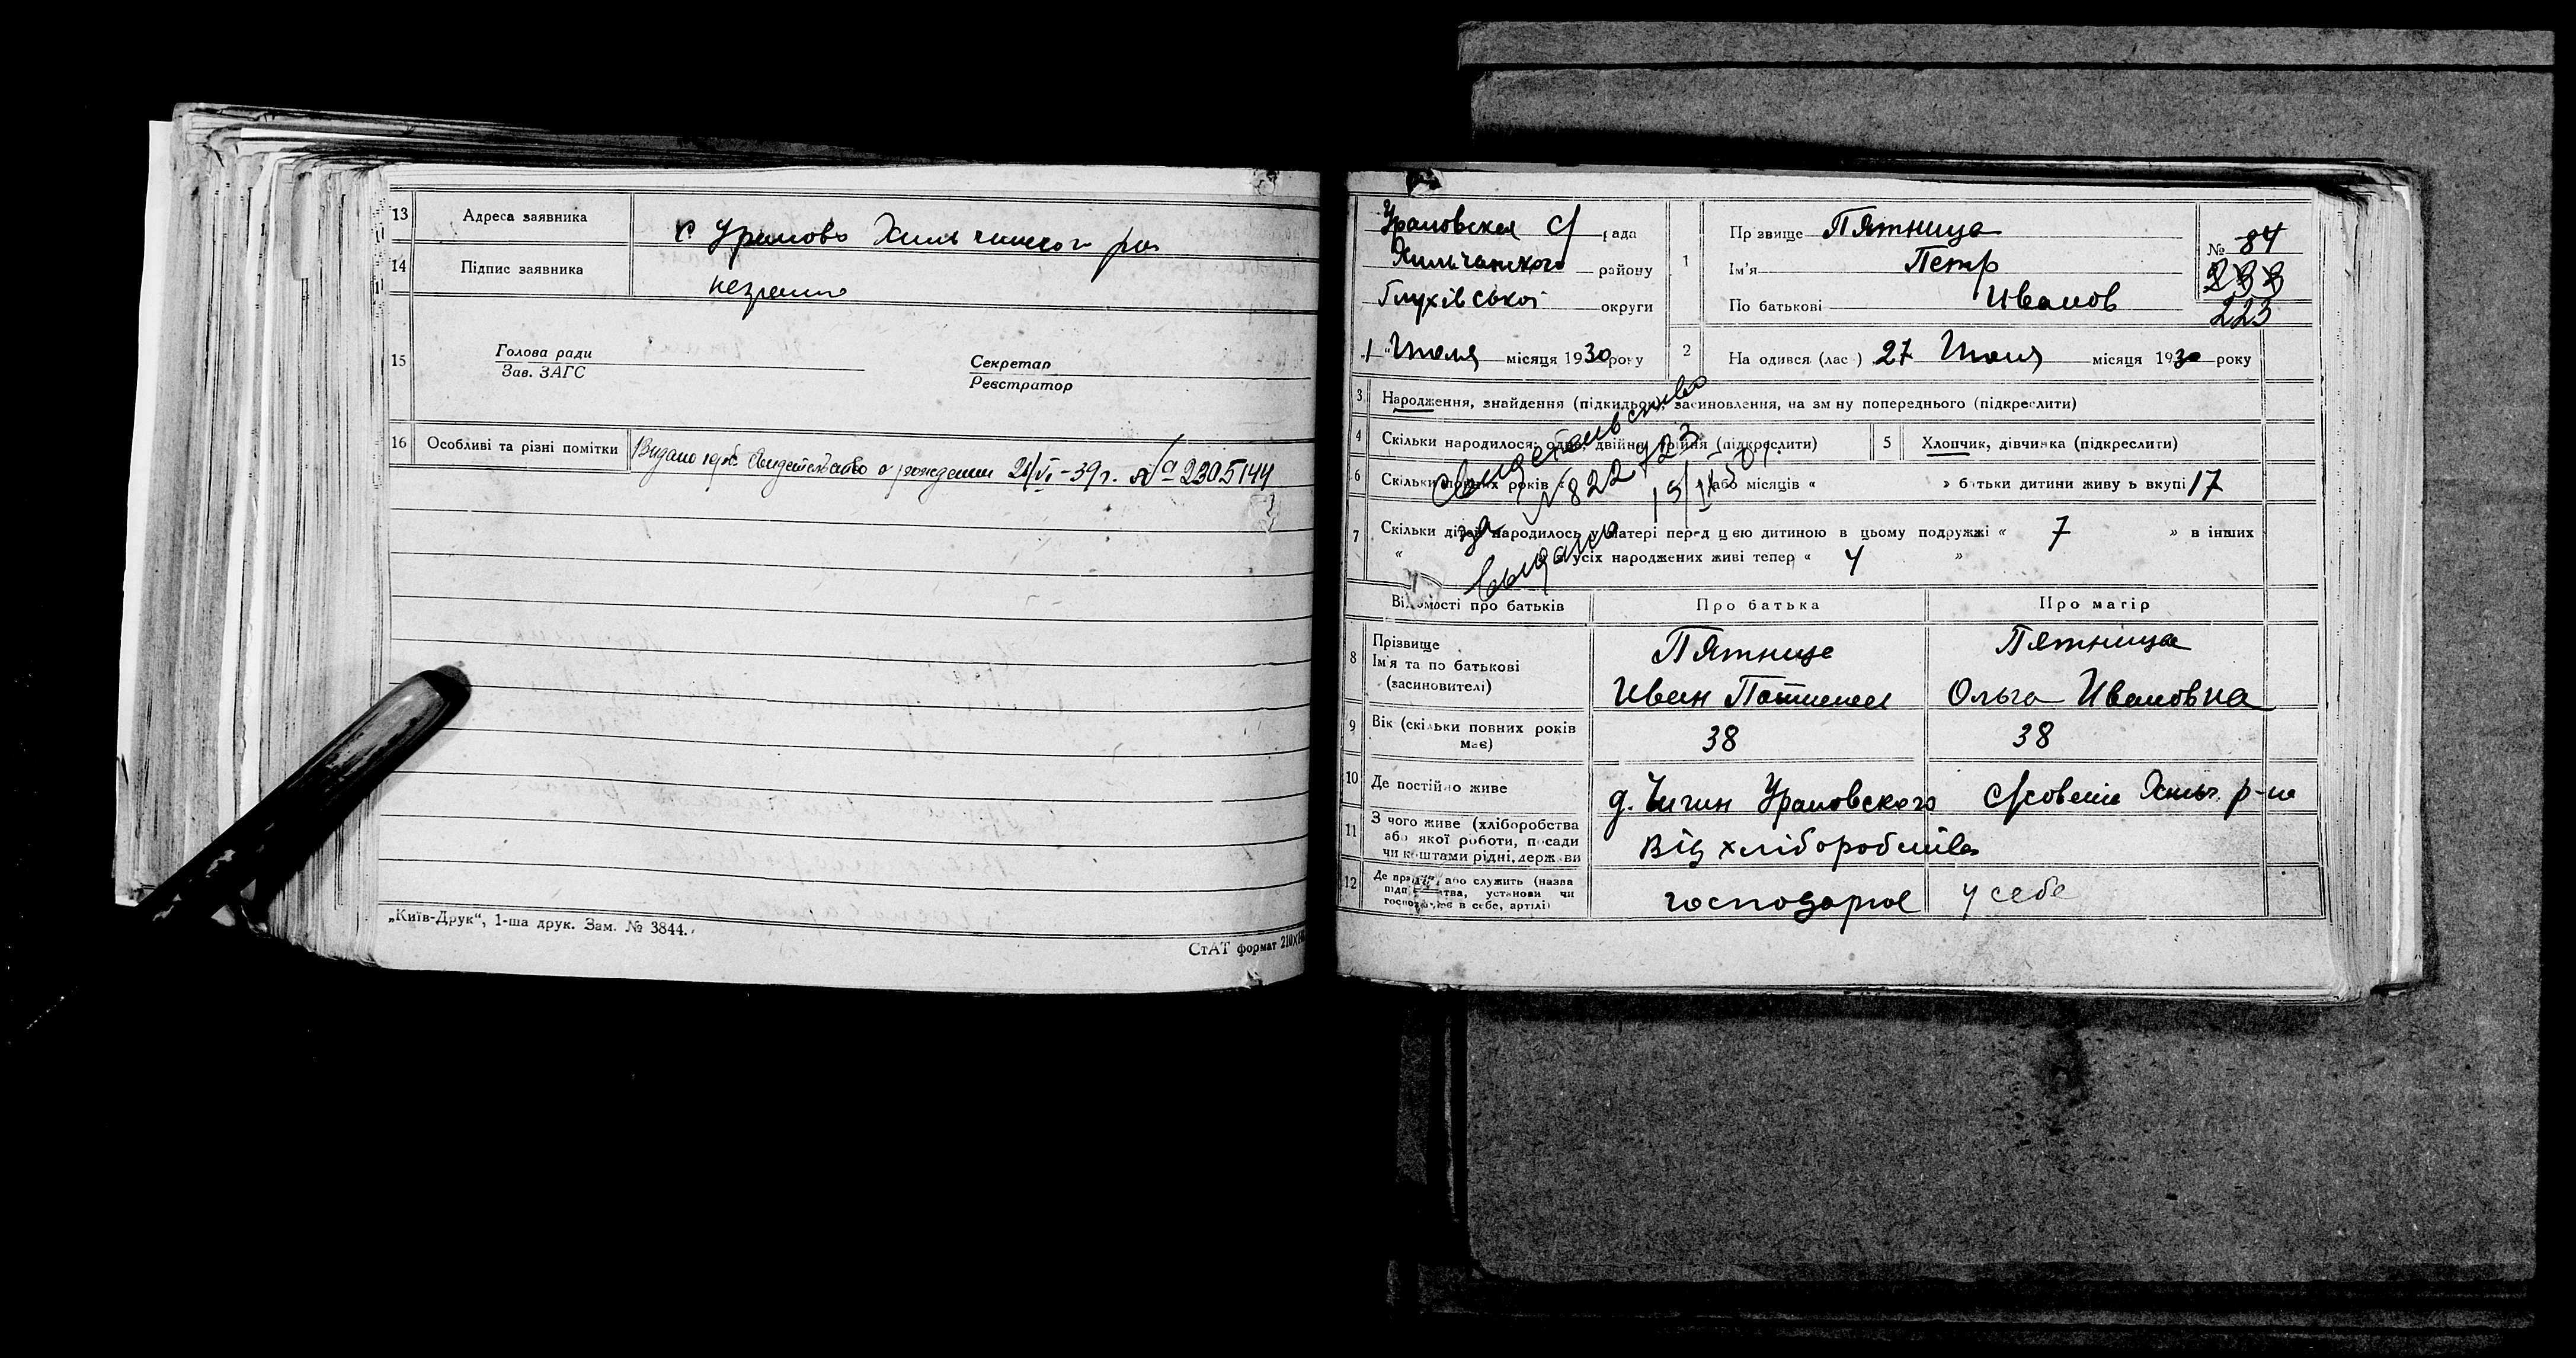 13 Адреса заявника с Уралово Хильчинского
14 Підпис заявника
15 Голова ради
Зав. ЗАГС
Секретар
Реєстратор
16 Особливі та різні помітки Видано Свидетельство о рождении 21/VI-39г. № 2305144
„Київ-Друк“, 1-ша друк. Зам. № 3844.
СтАТ формат 210×
Ураловская С/ рада
Хильчанского району
Глухівської округи
1 Июля місяця 1930 року
1 Прізвище Пятница
Ім'я Петр
По батькові Иванов
№ 84
223
2 Народився (лас ) 27 Июля місяця 1930 року
3 Народження, знайдення (підкидьок), засиновлення, на зміну попереднього (підкреслити)
4 Скільки народилося: одна, двійня, трійня (підкреслити)
5 Хлопчик, дівчинка (підкреслити)
6 Скільки повних років або місяців « » батьки дитини живуть вкупі 17
7 Скільки дітей народилось у матері перед цією дитиною в цьому подружжі « 7 » в інших
« усіх народжених живі тепер « 4 »
выдано свидетельство
за № 822923
Відомості про батьків Про батька Про матір
8 Прізвище
Ім'я та по батькові
(засиновителі)
Пятнице
Иван
Пятница
Ольга Ивановна
9 Вік (скільки повних років має) 38 38
10 Де постійно живе д. Чигин Ураловского С/совета Хильч. р-на
11 З чого живе (хліборобства
або якої роботи, посади
чи коштами рідні, держави
Від хліборобства
12 Де працює або служить (назва
підприємства, установи чи
господарює в себе, артілі)
господарює у себе